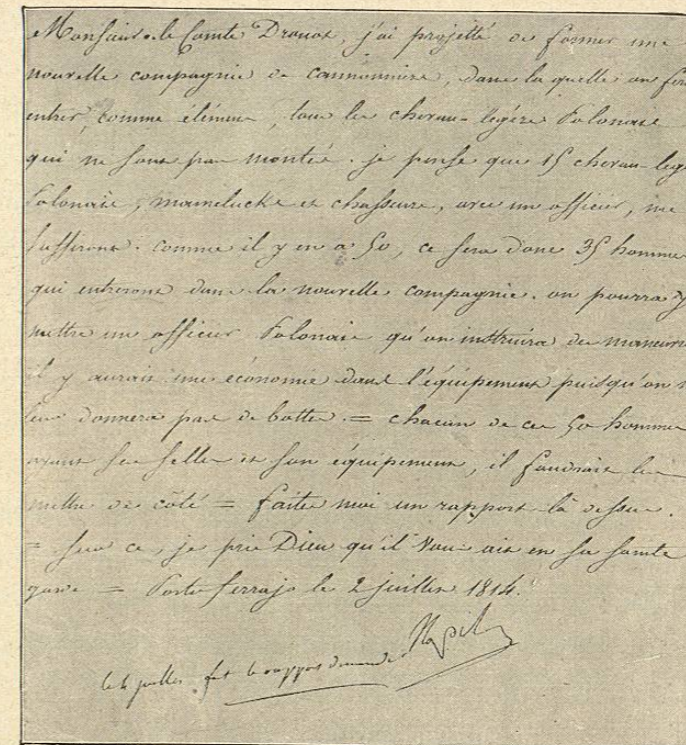 Monsieur le Comte Drouot, j'ai projetté de former une
nouvelle compagnie de cannonniers, dans la quelle on fera
entrer, comme élémens, tous les chevau-légers Polonais
qui ne sont pas montés. je pense que 15 chevau-lég
Polonais, mamelucks et chasseurs, avec un officier, me
suffiront. comme il y en a 50, ce sera donc 35 hommes
qui entreront dans la nouvelle compagnie. on pourra y
mettre un officier Polonais qu'on instruira des manœuv
il y aurait une économie dans l'équipement puisqu'on n
leur donnera pas de bottes. = chacun de ces 50 hommes
ayant sa selle et son équipement, il faudrait les
mettre de côté = faites moi un rapport là dessus.
= sur ce, je prie Dieu qu'il vous ait en sa sainte
garde = Porto ferrajo le 2 juillet 1814.
Np
le 4 juillet fait le rapport demandé